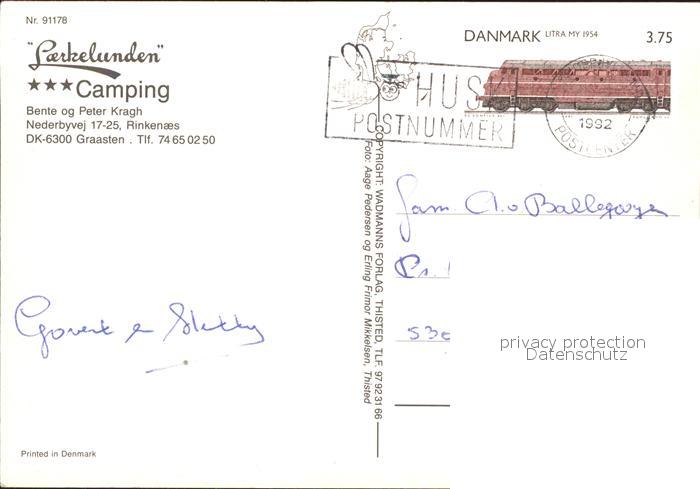 Nr. 91178
"Lærkelunden"
★★★Camping
Bente og Peter Kragh
Nederbyvej 17-25, Rinkenæs
DK-6300 Graasten . Tlf. 74 65 02 50
DANMARK LITRA MY 1954 3.75
HUSK
POSTNUMMER
1992
POSTCENTER
COPYRIGHT: WADMANNS FORLAG, THISTED, TLF. 97 92 31 66
Foto: Aage Pedersen og Erling Frimor Mikkelsen, Thisted
Fam. A. v Ballegooyen
530
Govert en
privacy protection
Datenschutz
Printed in Denmark